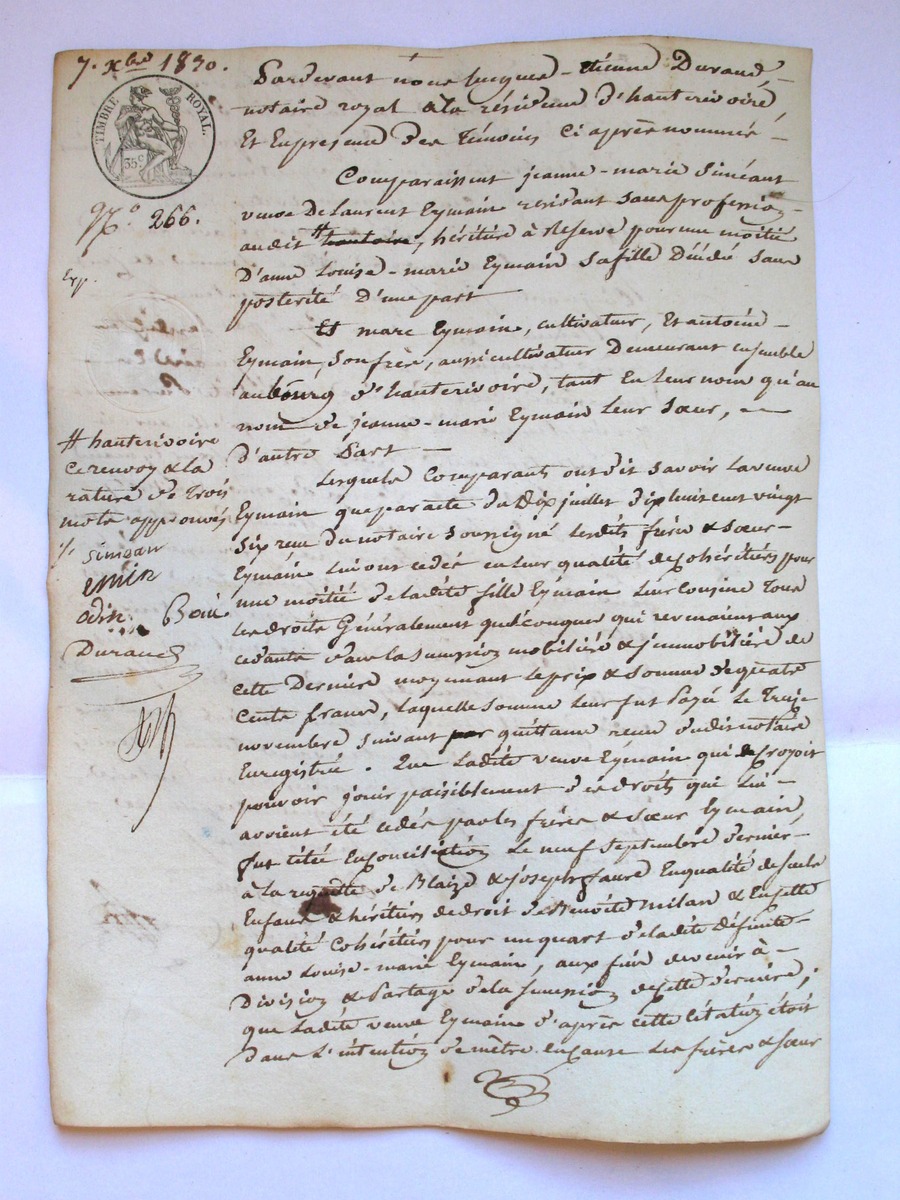 7. Xbre 1830.
TIMBRE ROYAL.
35 c
No 266.
Exp.
Pardevant nous Jacques-Etienne Durand
notaire royal à la résidence d'hauterivoire
Et En presence des Témoins Ci après nommés
Comparaissent jeanne-marie Siméant
veuve De Laurent Eymain residant sans profession
audit # hautoire, héritière à Reserve pour une moitié
D'anne Louise-marie Eymain sa fille Décédé sans
posterité D'une part
Et marc Eymain, cultivateur, Et antoine
Eymain, son frère, aussi cultivateur Demeurant ensemble
au bourg d'hauterivoire, tant En leur nom qu'au
nom de jeanne-marie Eymain leur Sœur,
D'autre Part
# hauterivoire
ce renvoy & la
rature de Trois
mots approuvés
simean
emin
odin Boin
Durand
Lesquels Comparants ont dit Savoir la veuve
Eymain que par acte du Dix juillet dix huit cent vingt
six recu du notaire Soussigné lesdits frère & Sœur
Eymain lui ont cedé en leur qualité de cohéritiers pour
une moitié de ladite fille Eymain leur cousine Tous
les droits Généralement quelconques qui revenaient aux
cedants dans la succession mobilière & jmmobilière de
cette Dernière moyennant le prix & Somme de quatre
Cents francs, laquelle somme leur fut Payé le Treize
novembre suivant par quittance recue dudit notaire
Enregistrée. Que Ladite veuve Eymain qui croyoit
pouvoir jouir paisiblement des droits qui Lui
avoient été cedés par les frères & sœur Eymain,
fut citée En conciliation Le neuf Septembre dernier
à la requette de Blaize & joseph faure En qualité de seuls
Enfans & héritiers de droit de Benoite Milan & En cette
qualité Cohéritiers pour un quart de ladite défunte
anne Louise-marie Eymain, aux fins de venir à
Division & Partage de la Succession de cette dernière;
que Ladite veuve Eymain d'après cette Citation étoit
dans L'intention de mètre en cause Les frères & sœur